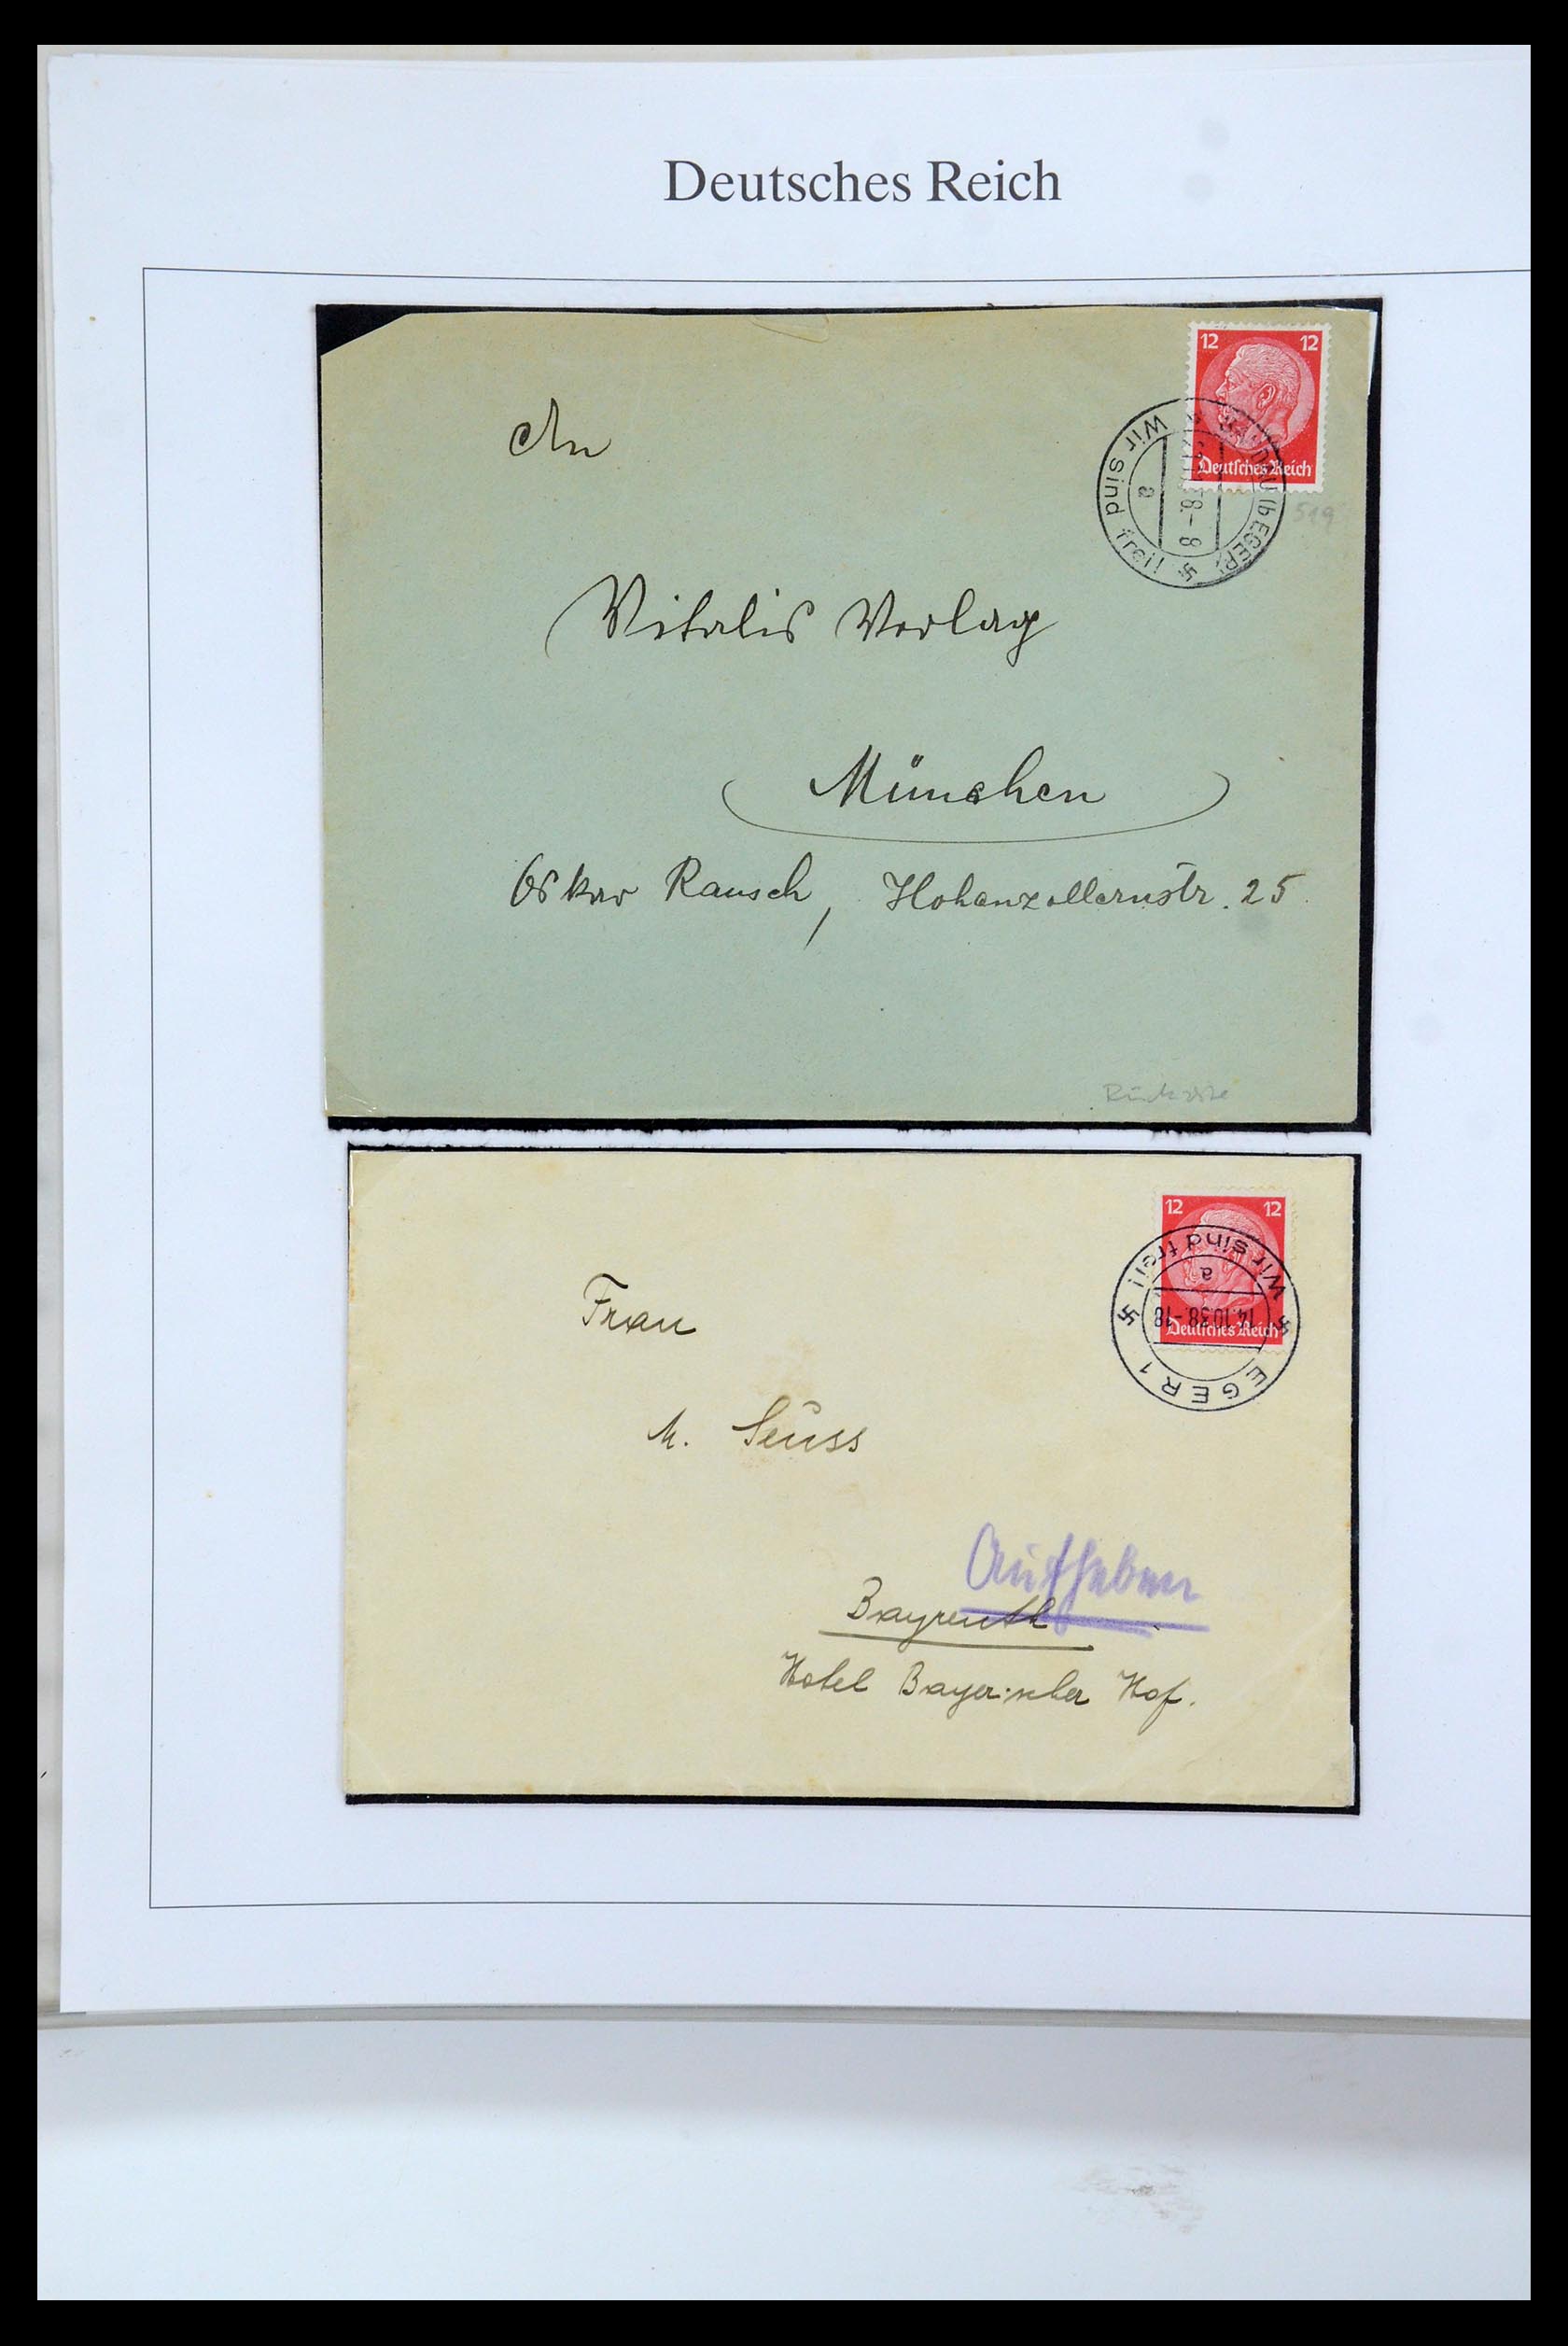 Deutsches Reich
12 12
Deutsches Reich
Wir sind frei!
a
38.-8
(b EGER)
519
An
Vitalis Verlag
München
Oskar Rausch, Hohenzollernstr. 25.
Rückseite
12 12
Deutsches Reich
Wir sind frei!
a
14.10.38.-18
EGER 1
Frau
M. Seuss
Aufheben
Bayreuth
Hotel Bayerischer Hof.